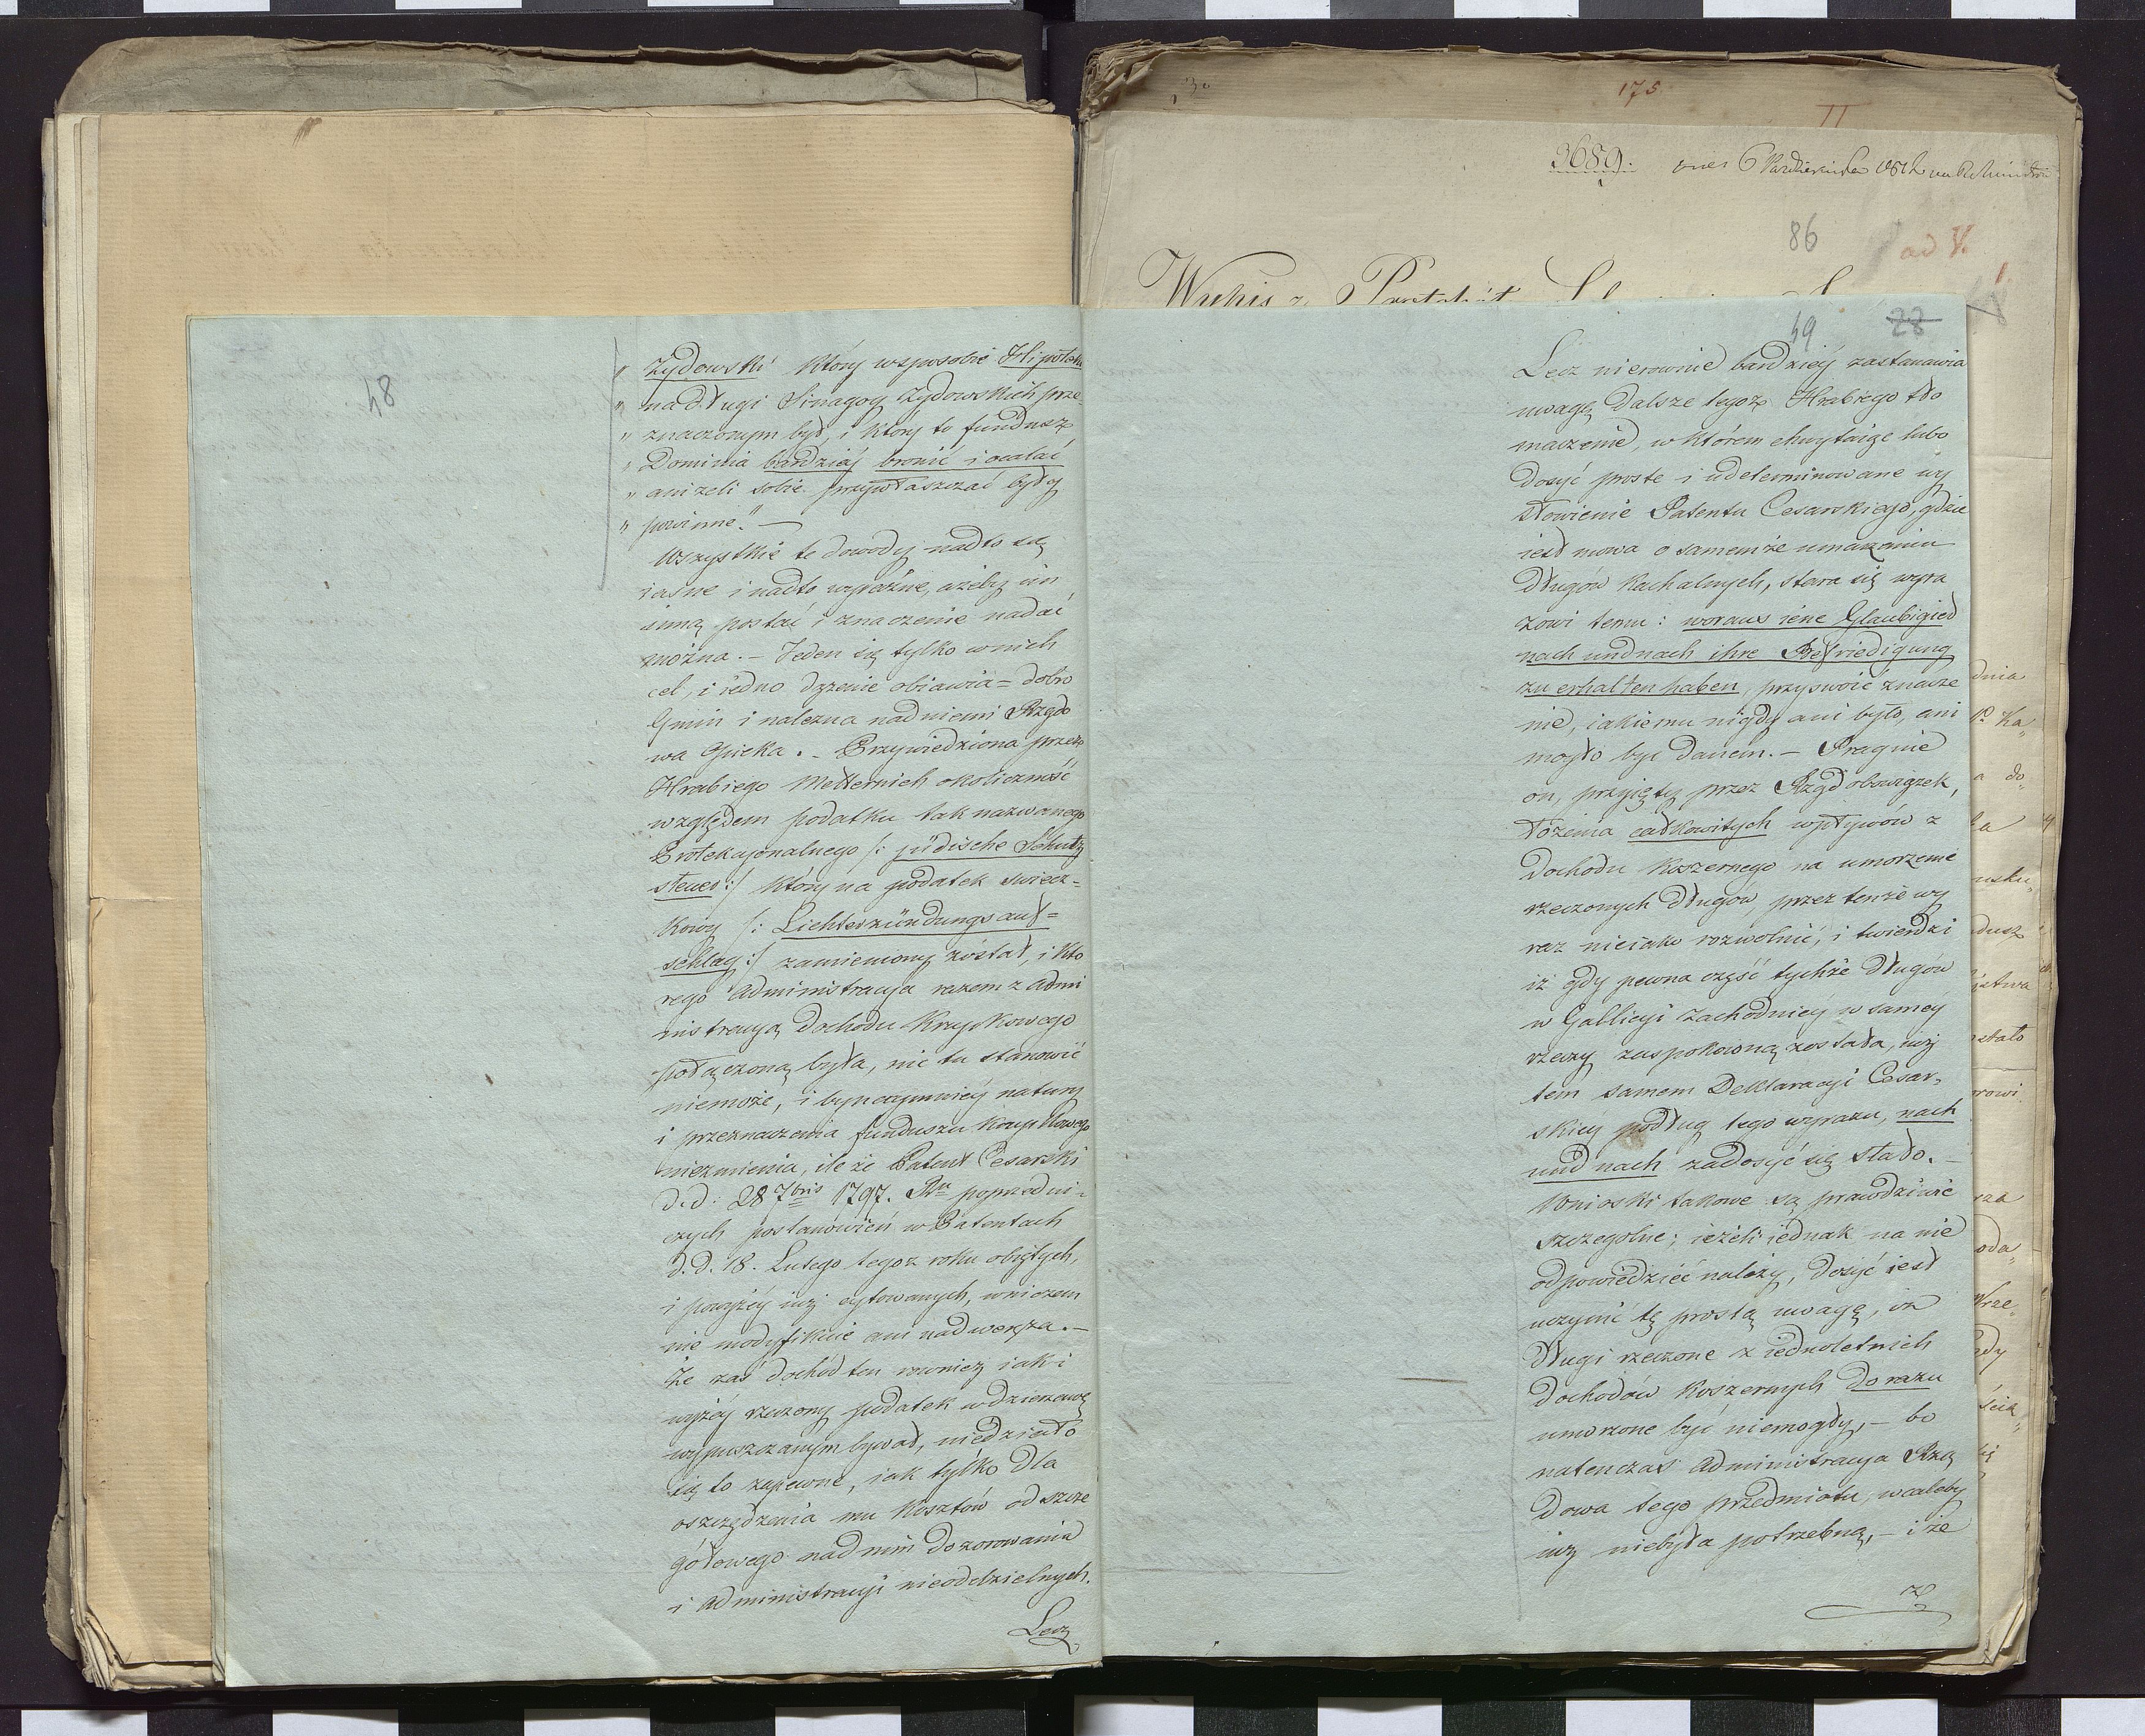 48
„ Żydowski który wsposobie Hipoteki
„ na długi Sinagog Żydowskich prze-
„ znaczonym był, i który to fundusz
„ Dominia bardziej bronić i ocalać
„ anizeli sobie przywłaszczać były
„ powinne." —
Wszystkie te dowody nadto są
iasne i nadto wyraźne, ażeby im
inną postać i znaczenie nadać
można. — Jeden się tylko w nich
cel, i iedno dążenie obiawia = dobro
Gmin i należna nad niemi Rządo
wa Opieka. — Przywiedziona przez
Hrabiego Metternich okoliczność
względem podatku tak nazwanego
Protekcyonalnego /: jüdische Schutz
steuer :/ który na podatek swiecz=
kowy /: Lichterzündungs auf=
schlag :/ zamieniony został, i któ
rego Administracya razem z Admi
nistracyą Dochodu Krupkowego
połączoną była, nic tu stanowić
niemoże, i bynaymniéy natury
i przeznaczenia funduszu Krupkowego
niezmienia, ile że Patent Cesarski
d. d. 28 7bris 1797. Ru poprzedni-
czych postanowień w Patentach
d. d. 18. Lutego tegoz roku obiętych,
i powyżéy iuż cytowanych, wniczem
nie modyfikuie ani nadweręża. —
Że zaś dochód ten rownież iak i
wyżéy rzeczony podatek w dzierzawę
wypuszczanym bywał, niedziało
się to zapewne, iak tylko dla
oszczędzenia mu Kosztów od szcze
gółowego nad nim dozorowania
i Administracyi nieoddzielnych.
Lecz
175
II
3689.
86
ad V.
Wypis z
49 28
Lecz nierownie bardziéy zastanawia
uwagę dalsze tegoż Hrabiego tło
maczenie, w którém chwytaiąc lubo
dosyć proste i udeterminowane wy
słowienie Patentu Cesarskiego, gdzie
iest mowa o samemże umarzaniu
długów Kachalnych, stara się wyra
zowi temu: woraus iene Glaubiger
nach und nach ihre Befriedigung
zu erhalten haben, przyswoić znacze
nie, iakiemu nigdy ani było, ani
mogło być daném. — Pragnie
on, przyięty przez Rząd obowiązek,
łożenia całkowitych wpływów z
Dochodu Koszernego na umorzenie
rzeczonych długów, przez tenże wy
raz nieiako rozwolnić, i twierdzi
iż gdy pewna część tychże długów
w Gallicyi Zachodniéy w saméy
rzeczy zaspokoioną została, iuż
tém samem Deklaracyi Cesar-
skiey podług tego wyrazu, nach
und nach zadosyć się stało. —
Wnioski takowe są prawdziwie
szczególne; ieżeli iednak na nie
odpowiedzieć należy, dosyć iest
uczynić tę prostą uwagę, iż
długi rzeczone z iednoletnich
Dochodów Koszernych do razu
umorzone być niemogły, — bo
natenczas Administracya Rzą
dowa tego przedmiotu, wcaleby
iuż niebyła potrzebną, — i że
z